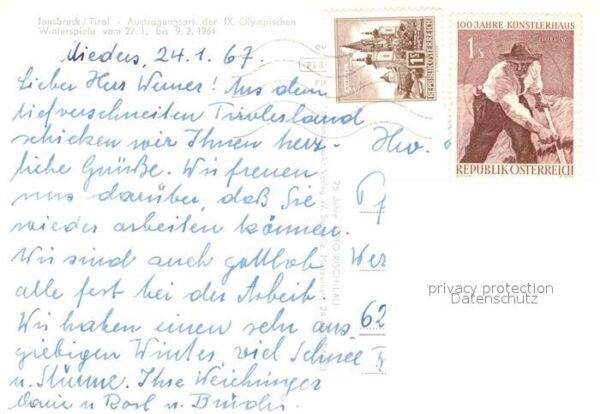 Innsbruck/Tirol - Austragungsort der IX. Olympischen
Winterspiele vom 27. 1. bis 9. 2. 1964
Mieders, 24.1.67.
Lieber Herr Werner! Aus dem
tiefverschneiten Tirolerland
schicken wir Ihnen herz-
liche Grüße. Wir freuen
uns darüber, daß Sie
wieder arbeiten können.
Wir sind auch gottlob
alle fest bei der Arbeit.
Wir haben einen sehr aus
giebigen Winter, viel Schnee
u. Stürme. Ihre
u. Rosl u. Brüder.
Hw.
Pf
Wer
62
REPUBLIK ÖSTERREICH
100 JAHRE KÜNSTLERHAUS
1s
REPUBLIK ÖSTERREICH
privacy protection
Datenschutz